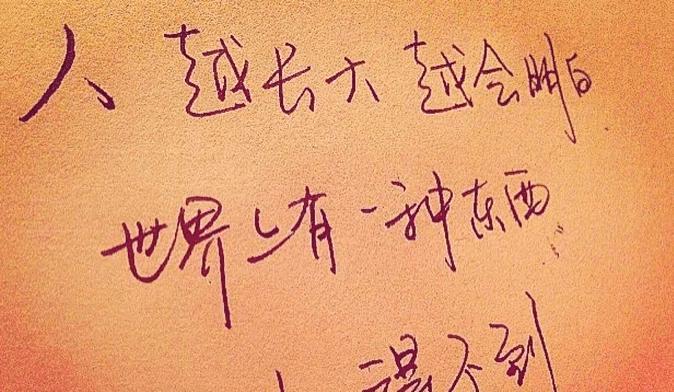 人 越长大 越会明白
世界上有一种东西
得不到